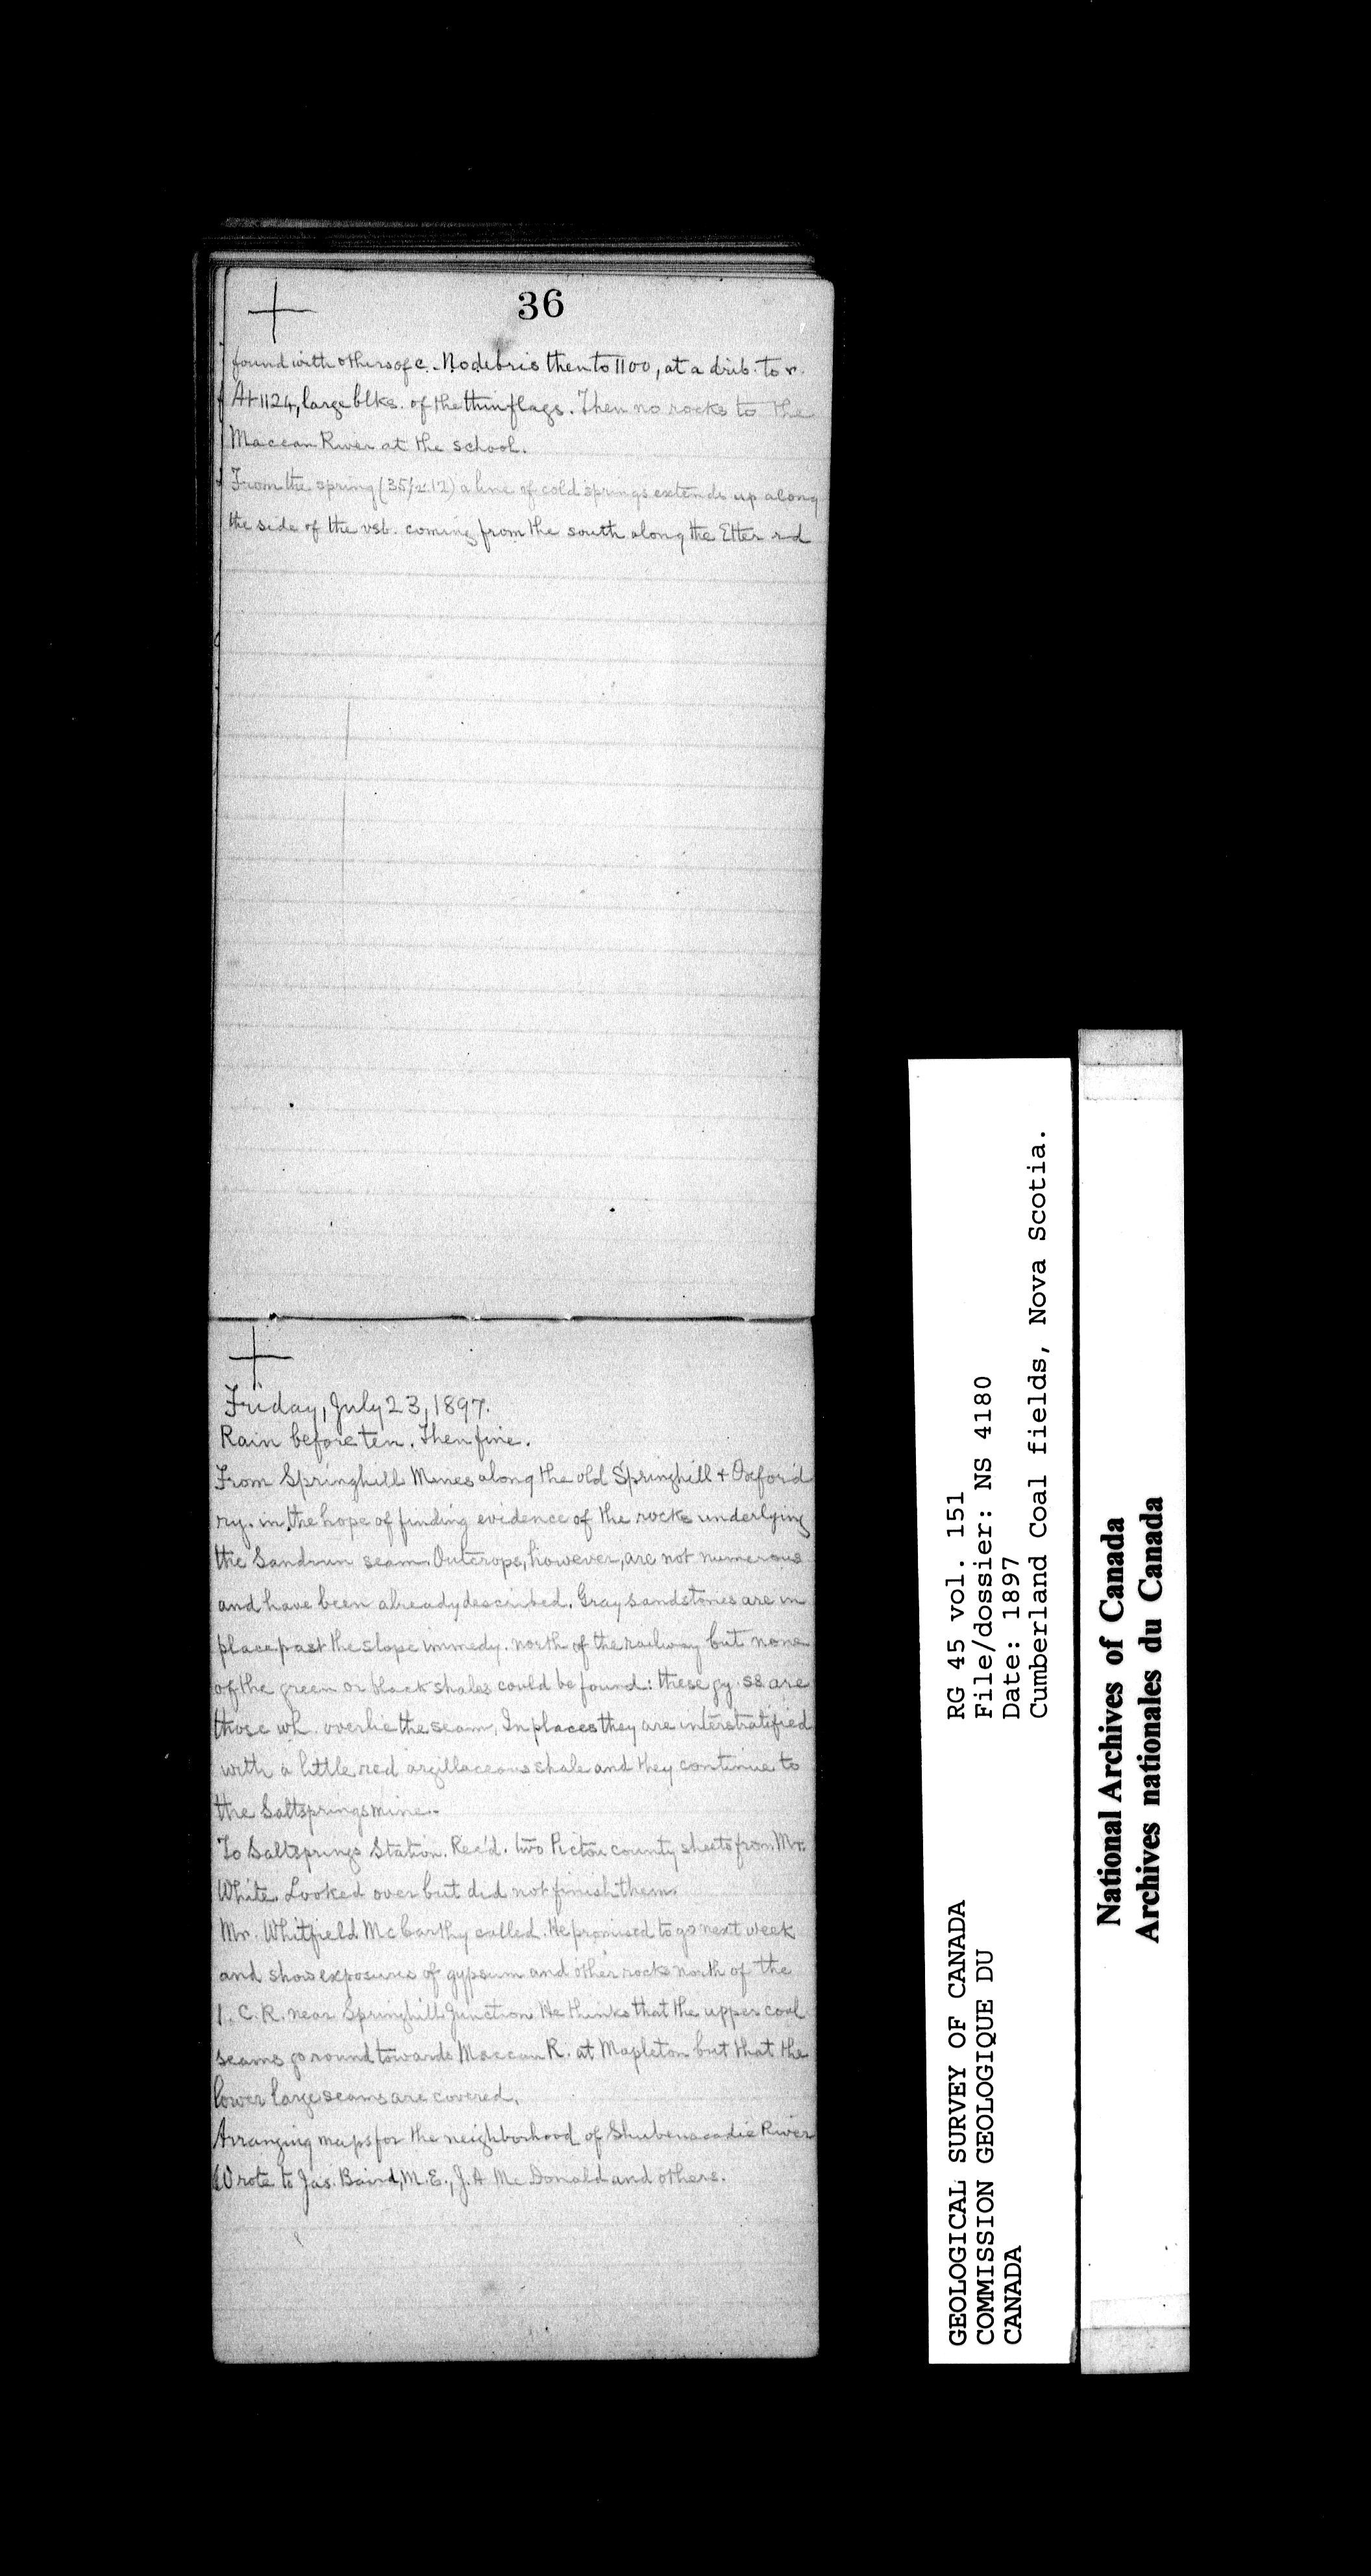 36
found with others of c. No debris then to 1100, at a drib. to r.
At 1124, large blks. of the thin flags. Then no rocks to the
Maccan River at the school.
From the spring (35/ 12) a line of cold springs extends up along
the side of the vsb. coming from the south along the Etter rd
Friday, July 23, 1897.
Rain before ten. Then fine.
From Springhill Mines along the old Springhill & Oxford
ry. in the hope of finding evidence of the rocks underlying
the Sandrun seam. Outcrops, however, are not numerous
and have been already described. Gray sandstones are in
place past the slope immedy. north of the railway but none
of the green or black shales could be found: these gy. ss are
those wh. overlie the seam. In places they are interstratified
with a little red argillaceous shale and they continue to
the Saltsprings mine.
To Saltsprings Station. Rec'd. two Pictou county sheets from Mr.
White. Looked over but did not finish them.
Mr. Whitfield McCarthy called. He promised to go next week
and show exposures of gypsum and other rocks north of the
I. C. R. near Springhill Junction. He thinks that the upper coal
seams go round towards Maccan R. at Mapleton but that the
lower large seams are covered.
Arranging maps for the neighborhood of Shubenacadie River
Wrote to Jas. Baird, M.E., J. A McDonald and others.
GEOLOGICAL SURVEY OF CANADA
COMMISSION GEOLOGIQUE DU
CANADA
RG 45 vol. 151
File/dossier: NS 4180
Date: 1897
Cumberland Coal fields, Nova Scotia.
National Archives of Canada
Archives nationales du Canada